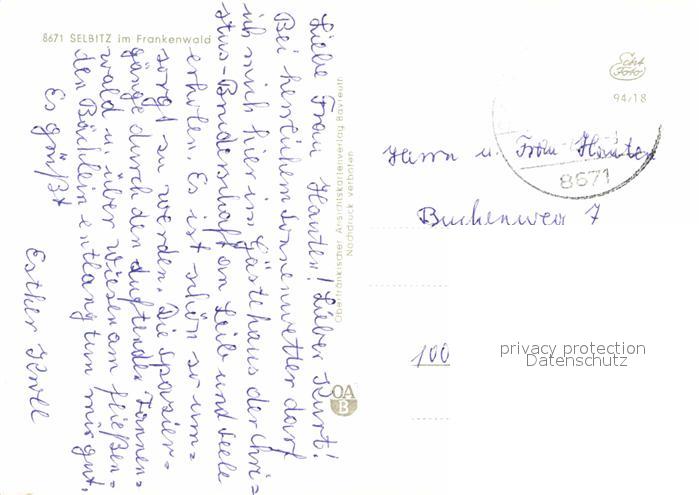 8671 SELBITZ im Frankenwald
Liebe Frau Hauter! Lieber Kurt!
Bei herrlichem Sonnenwetter darf
ich mich hier im Gästehaus der Chri=
stus-Bruderschaft an Leib und Seele
erholen. Es ist schön so um=
sorgt zu werden. Die Spazier=
gänge durch den duftenden Tannen=
wald u. über Wiesen am fließen=
den Bächlein entlang tun mir gut.
Es grüßt
Esther Knoll
Oberfränkischer Ansichtskartenverlag Bayreuth
Nachdruck verboten
OA
B
Echt
Foto
94/18
8671
Herrn u. Frau Hauter
Buchenweg 7
100
privacy protection
Datenschutz